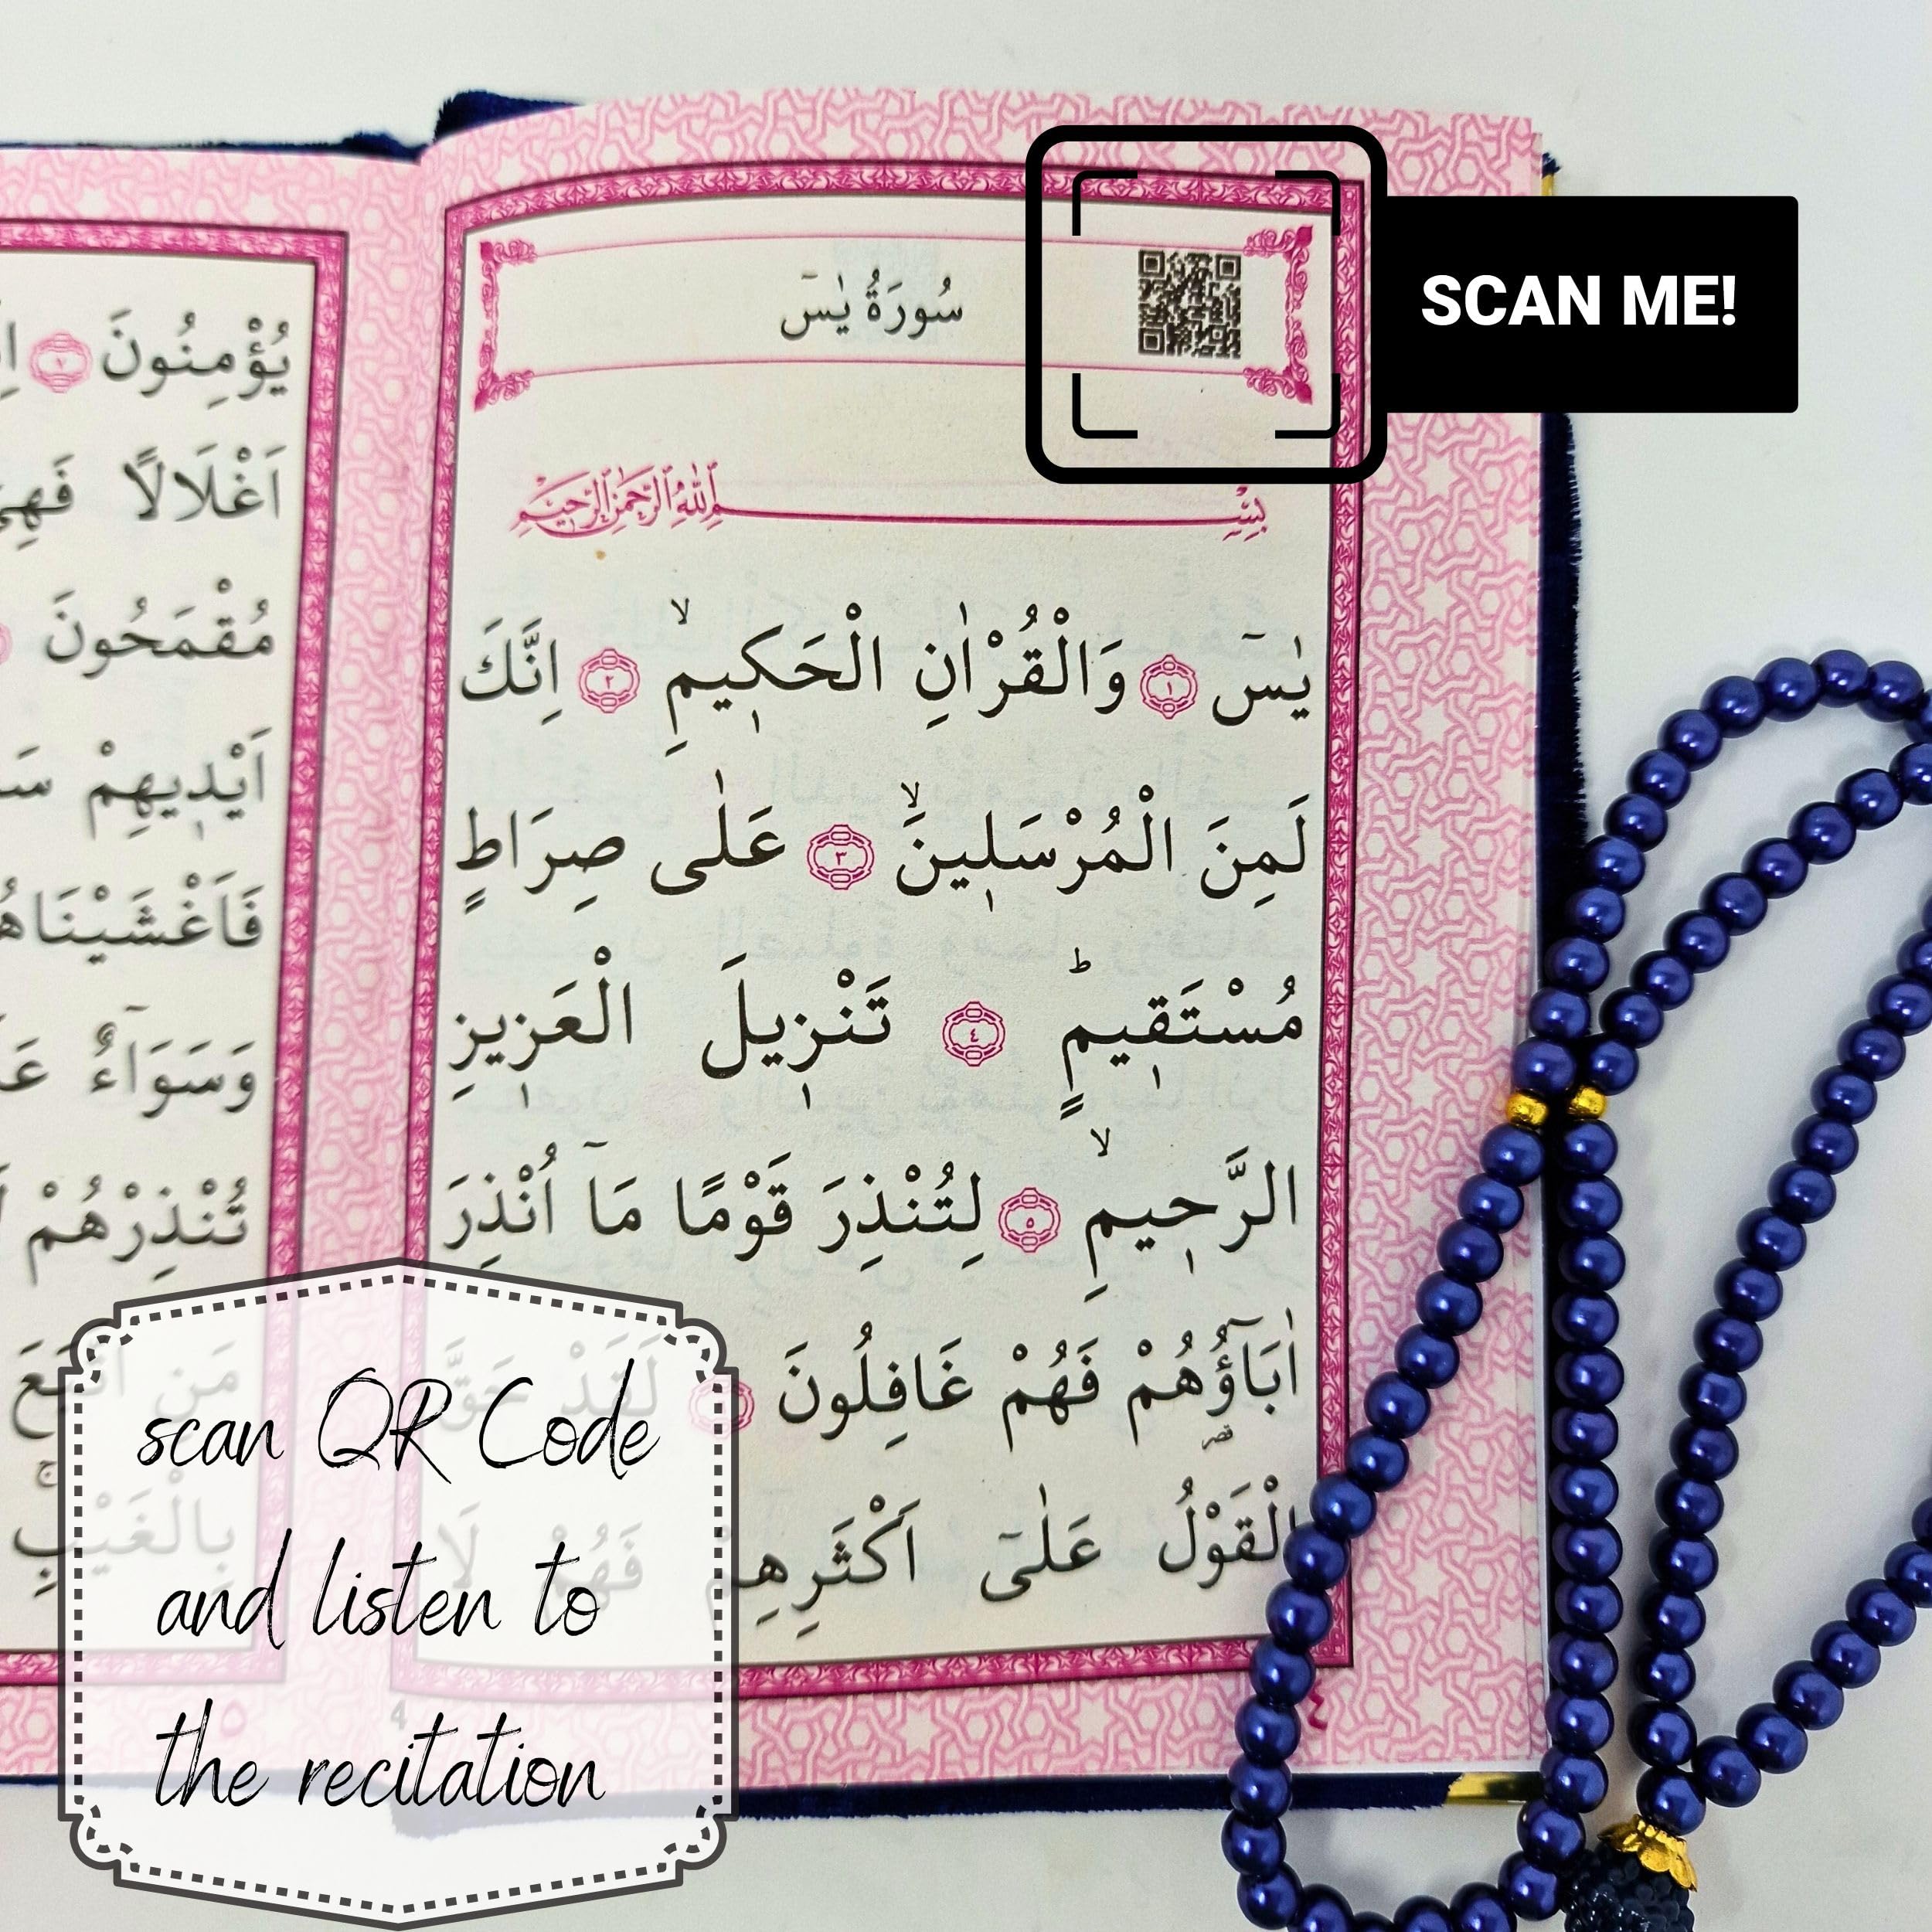 سُورَةُ يٰسٓ
SCAN ME!
بِسْمِ اللّٰهِ الرَّحْمٰنِ الرَّحِيمِ
يٰسٓ ١ وَالْقُرْاٰنِ الْحَكٖيمِۙ ٢ اِنَّكَ
لَمِنَ الْمُرْسَلٖينَۙ ٣ عَلٰى صِرَاطٍ
مُسْتَقٖيمٍؕ ٤ تَنْزٖيلَ الْعَزٖيزِ
الرَّحٖيمِۙ ٥ لِتُنْذِرَ قَوْمًا مَٓا اُنْذِرَ
اٰبَٓاؤُ۬هُمْ فَهُمْ غَافِلُونَ لَقَدْ حَقَّ
الْقَوْلُ عَلٰٓى اَكْثَرِهِمْ فَهُمْ لَا
٤
4
يُؤْمِنُونَ ٧
اَغْلَالًا فَهِيَ
مُقْمَحُونَ
اَيْدٖيهِمْ
فَاَغْشَيْنَاهُمْ
وَسَوَٓاءٌ
تُنْذِرْهُمْ
مَنِ اتَّبَعَ
بِالْغَيْبِۚ
٥
scan QR Code
and listen to
the recitation